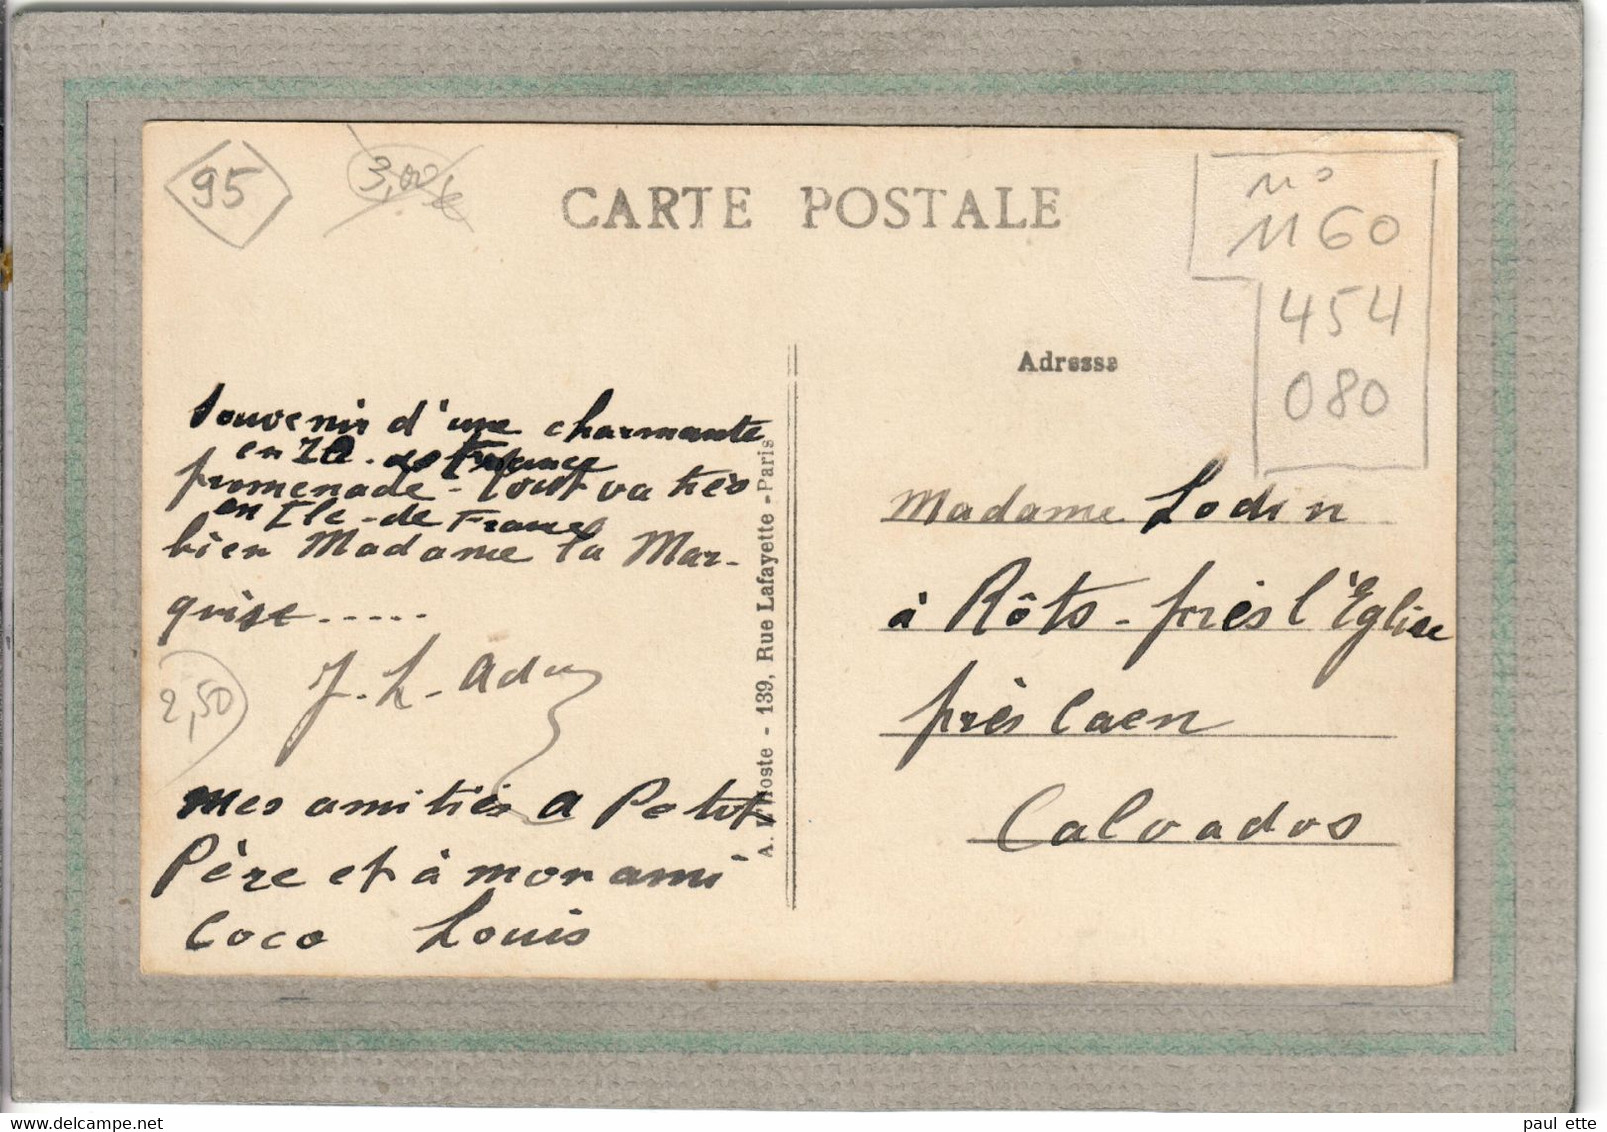 95
3,00
CARTE POSTALE
no
1160
454
080
Adresse
Souvenir d'une charmante
en de France
promenade - tout va très
en Ile-de France
bien Madame la Mar-
quise.....
J. L. Adu
2,50
Mes amitiés a Petit
Père et à mon ami
Coco Louis
A. L'Hoste - 139, Rue Lafayette - Paris
Madame Lodin
à Rôts - près l'Eglise
près Caen
Calvados
delcampe.net
paul ette